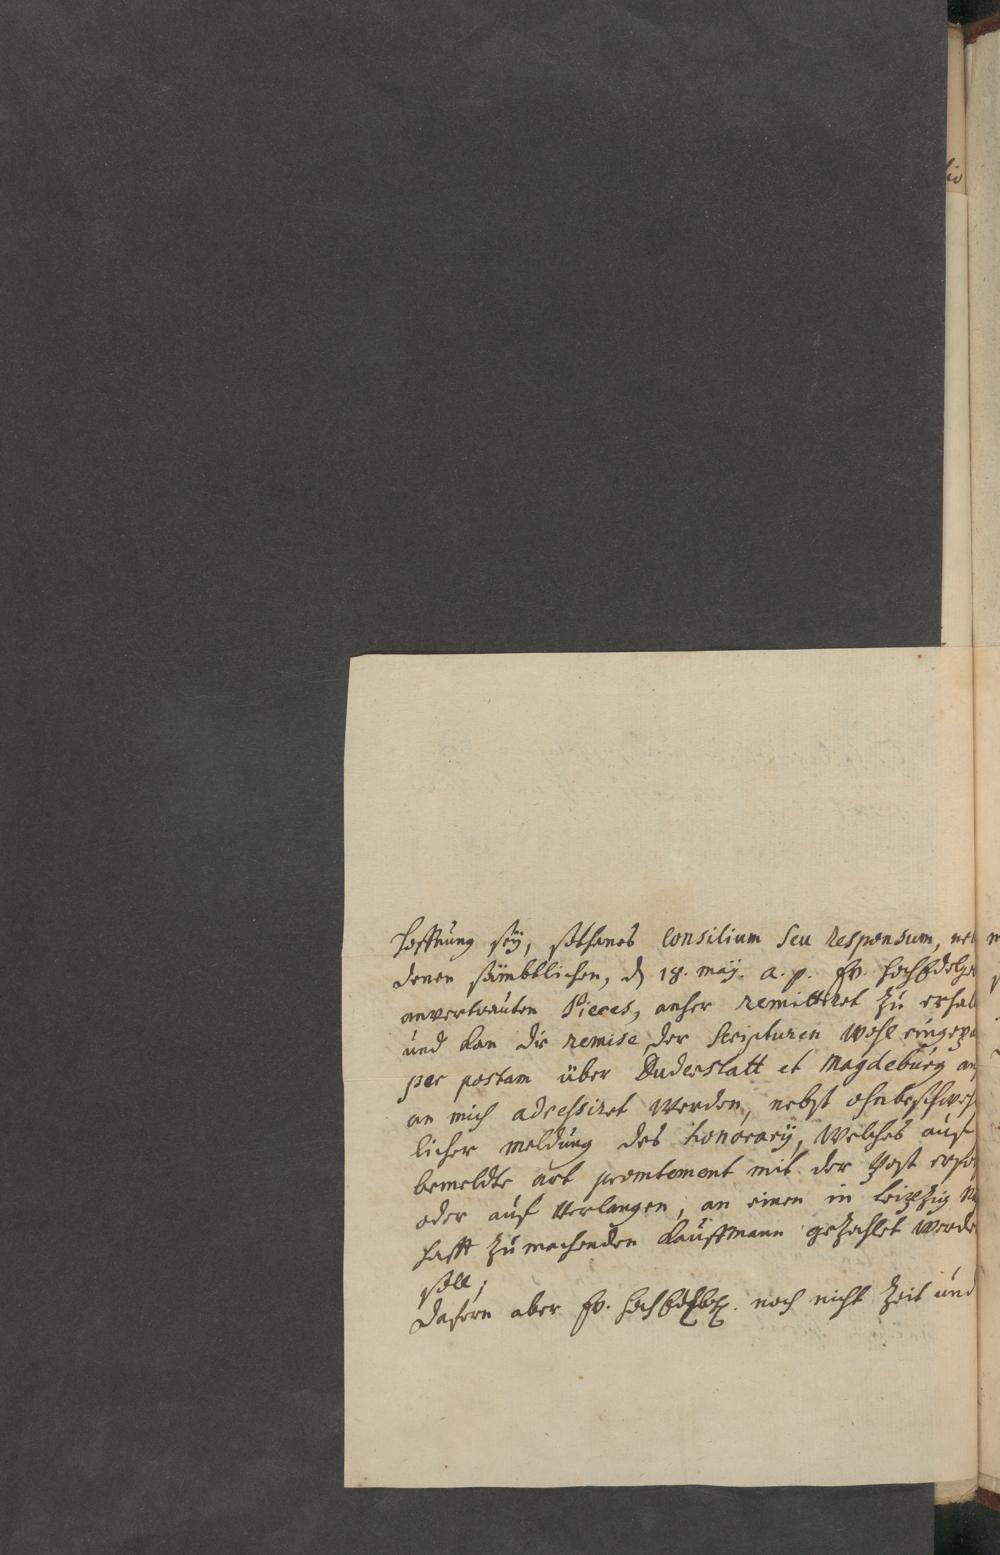 hoffnung seÿ, sothanes Consilium seu Responsum, ne
denen sämbtlichen, d 18. maÿ. a. p. Ew. HochEdelge
anvertrauten Pieces, anher remittiret zu erhal
und kan die remise der Scripturen wohl eingepa
per postam über Duderstatt et Magdeburg an
an mich adressiret werden, nebst ohnbeschwer
licher meldung des honorarÿ, welches auf
bemeldte art promtement mit der Post erfo
oder auf verlangen, an einen in Leipzig na
hafft zumachenden Kauffmann gezahlet werde
soll;
Dafern aber Ew. HochEdelgeb. noch nicht Zeit und